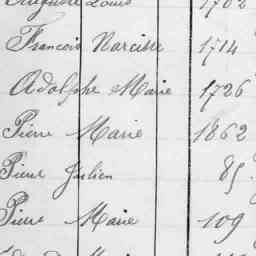 Auguste Louis 1702
François Narcisse 1714
Adolphe Marie 1726
Pierre Marie 1862
Pierre Julien 85
Pierre Marie 109